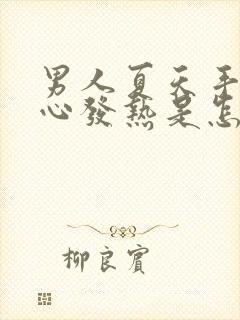 男人夏天手
心發熱是怎
柳良賓